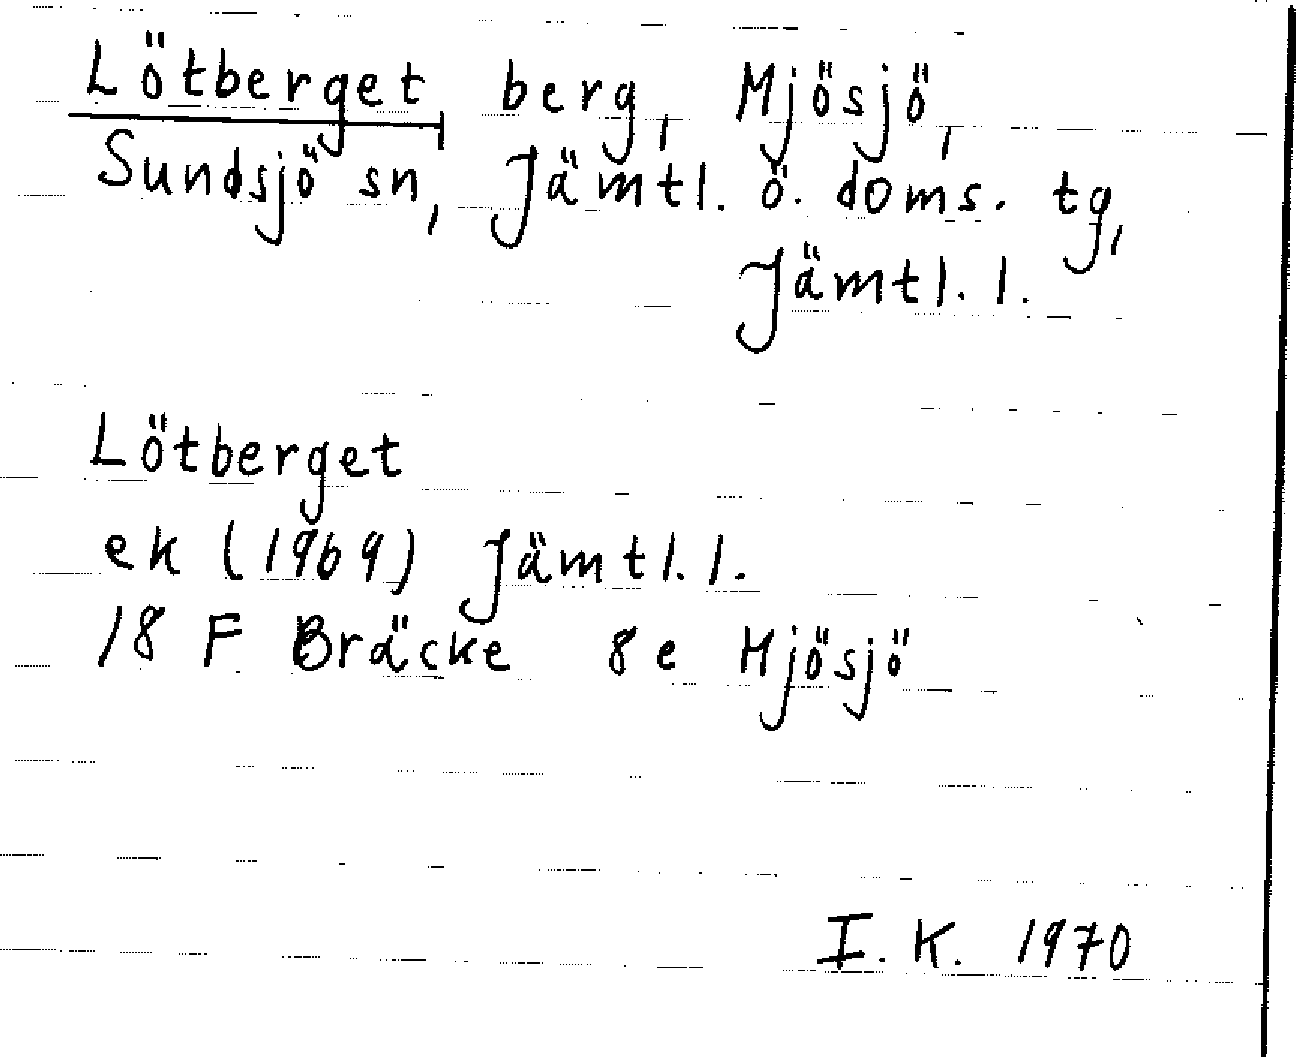 Lötberget, berg, Mjösjö,
Sundsjö sn, Jämtl. ö. doms. tg,
Jämtl. l.
Lötberget
ek (1969) Jämtl. l.
18 F Bräcke 8e Mjösjö
I. K. 1970